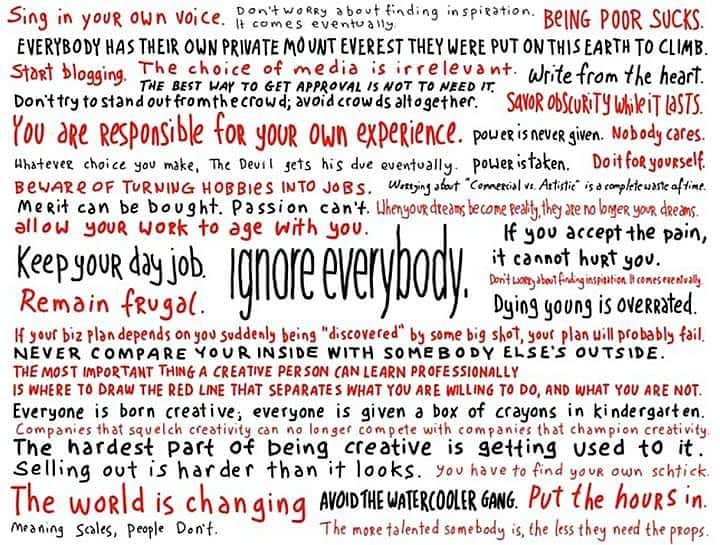 Sing in your own voice. Don't worry about finding inspiration. It comes eventually. Being poor sucks.
Everybody has their own private Mount Everest they were put on this earth to climb.
Start blogging. The choice of media is irrelevant. Write from the heart.
The best way to get approval is not to need it.
Don't try to stand out from the crowd; avoid crowds altogether. Savor obscurity while it lasts.
You are responsible for your own experience. power is never given. Nobody cares.
Whatever choice you make, The Devil gets his due eventually. power is taken. Do it for yourself.
Beware of turning hobbies into jobs. Worrying about "Commercial vs. Artistic" is a complete waste of time.
Merit can be bought. Passion can't. When your dreams become reality, they are no longer your dreams.
allow your work to age with you.
If you accept the pain, it cannot hurt you.
Keep your day job. ignore everybody.
Don't worry about finding inspiration. It comes eventually.
Remain frugal. Dying young is overrated.
If your biz plan depends on you suddenly being "discovered" by some big shot, your plan will probably fail.
Never compare your inside with somebody else's outside.
The most important thing a creative person can learn professionally
is where to draw the red line that separates what you are willing to do, and what you are not.
Everyone is born creative; everyone is given a box of crayons in kindergarten.
Companies that squelch creativity can no longer compete with companies that champion creativity.
The hardest part of being creative is getting used to it.
Selling out is harder than it looks. You have to find your own schtick.
The world is changing Avoid the watercooler gang. Put the hours in.
Meaning Scales, People Don't. The more talented somebody is, the less they need the props.